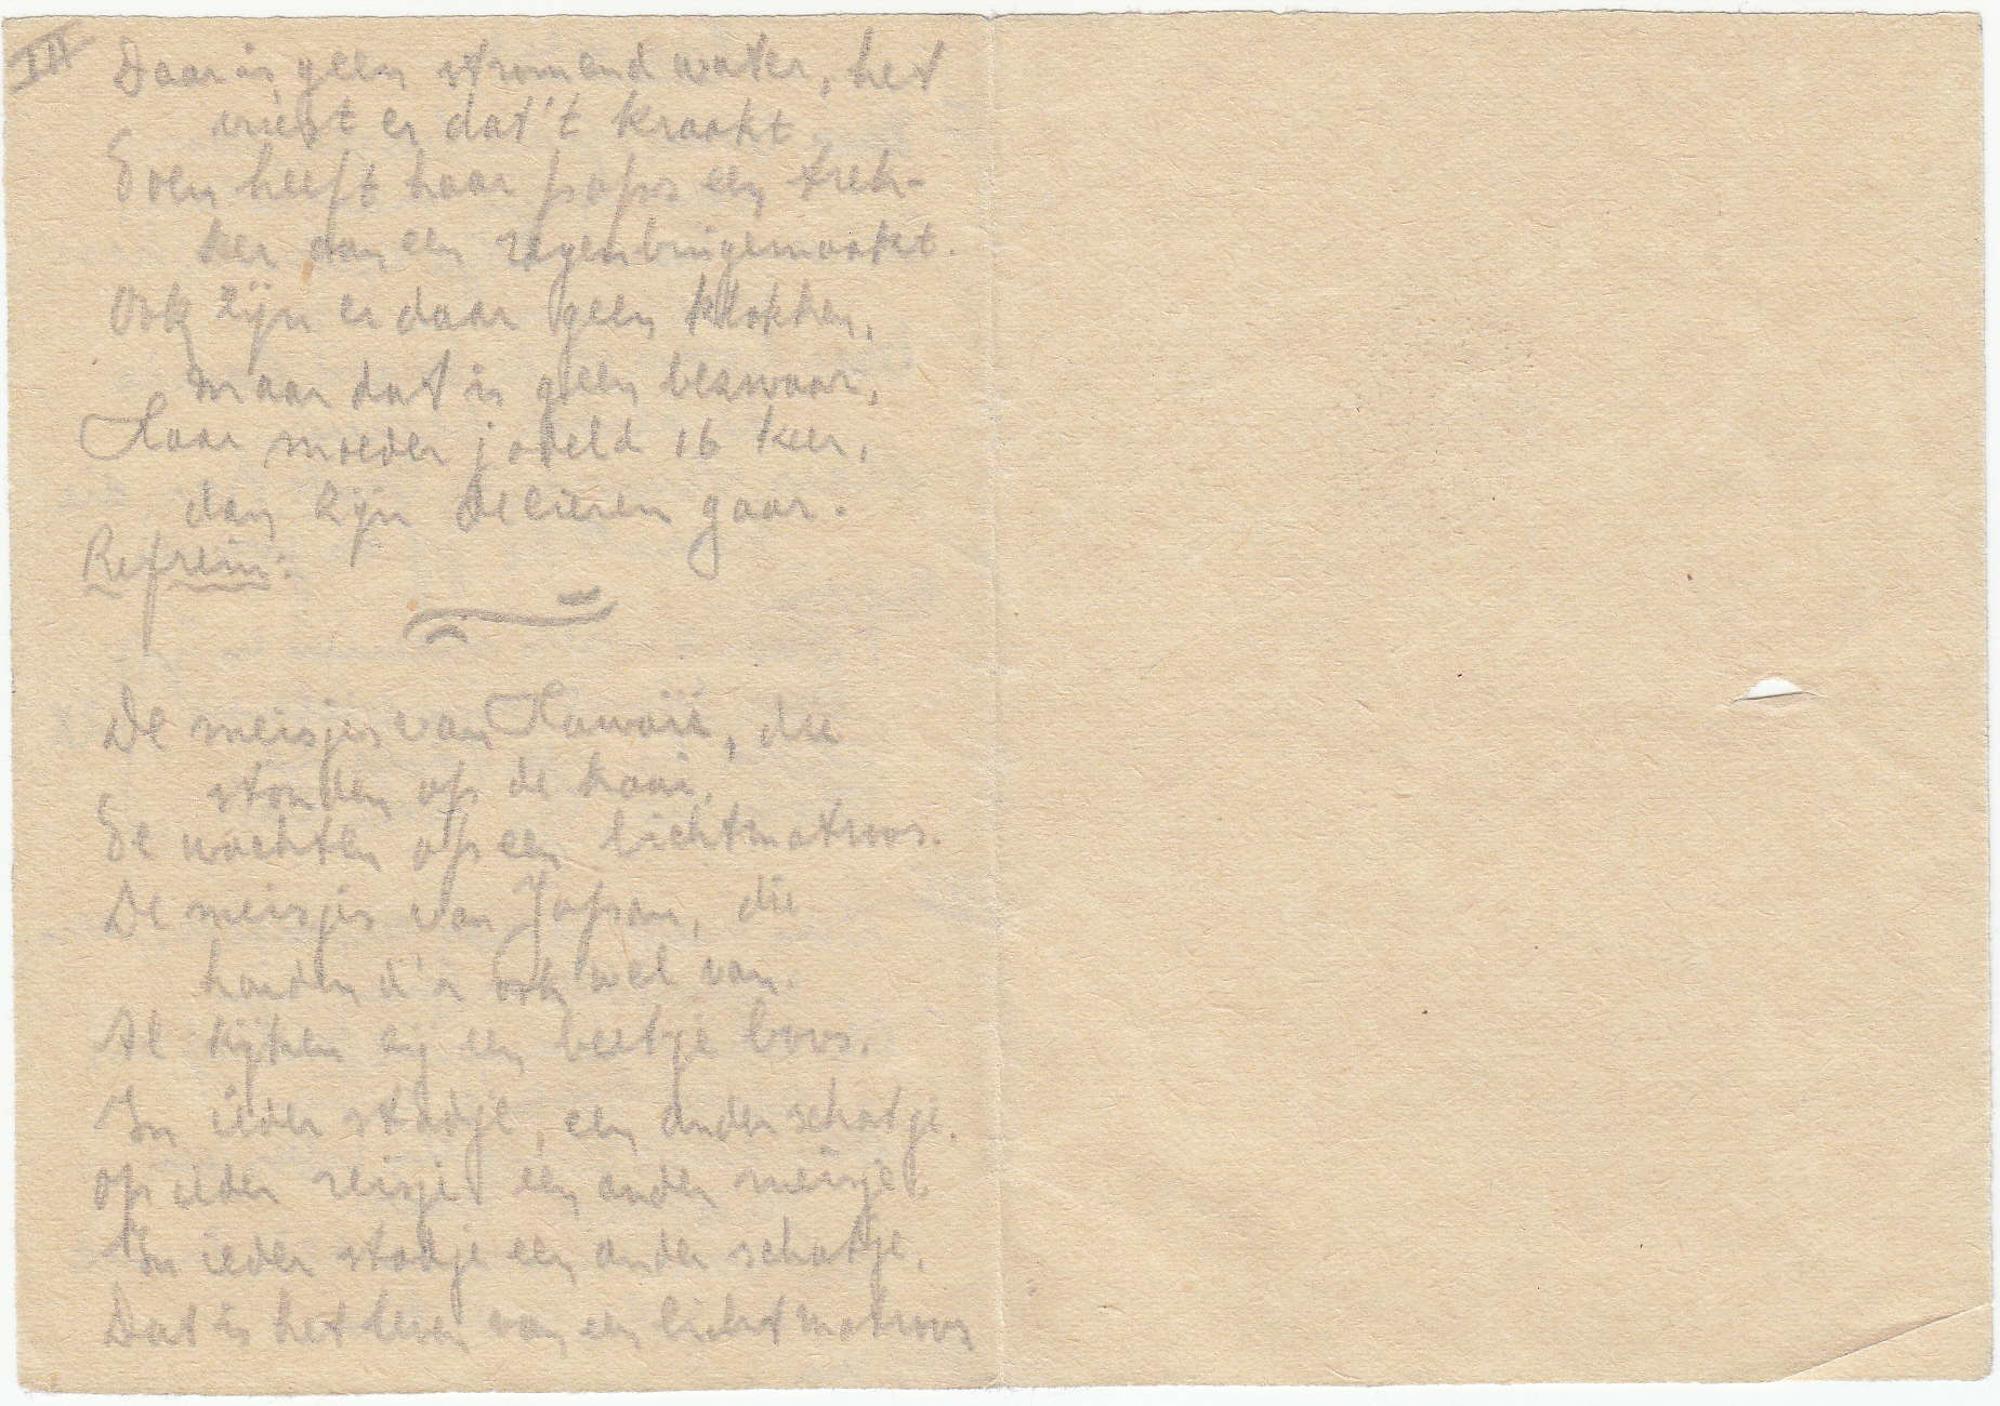 III Daar is geen stromend water, het
vriest er dat 't kraakt.
Toen heeft haar paps een trek-
ker aan een regenbuigemaakt.
Ook zijn er daar geen klokken,
maar dat is geen bezwaar,
Haar moeder jodeld 16 keer,
dan zijn de eieren gaar.
Refrein:
De meisjes van Hawaïï, die
stonden op de kaai,
Te wachten op een lichtmatroos.
De meisjes van Japan, die
houden d'r ook wel van.
Al kijken zij een beetje boos.
In ieder stadje, een ander schatje.
op ieder reisje een ander meisje.
In ieder stadje een ander schatje.
Dat is het leven van een lichtmatroos